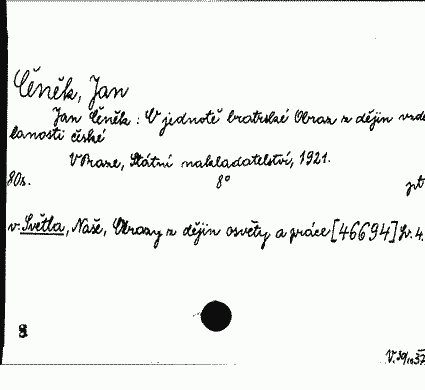 Čeněk, Jan
Jan Čeněk: V jednotě bratrské Obraz z dějin vzdě
lanosti české
V Praze, Státní nakladatelství, 1921.
80s. 8°
v: Světla, Naše, Obrazy z dějin osvěty a práce [46694] Sv. 4.
8